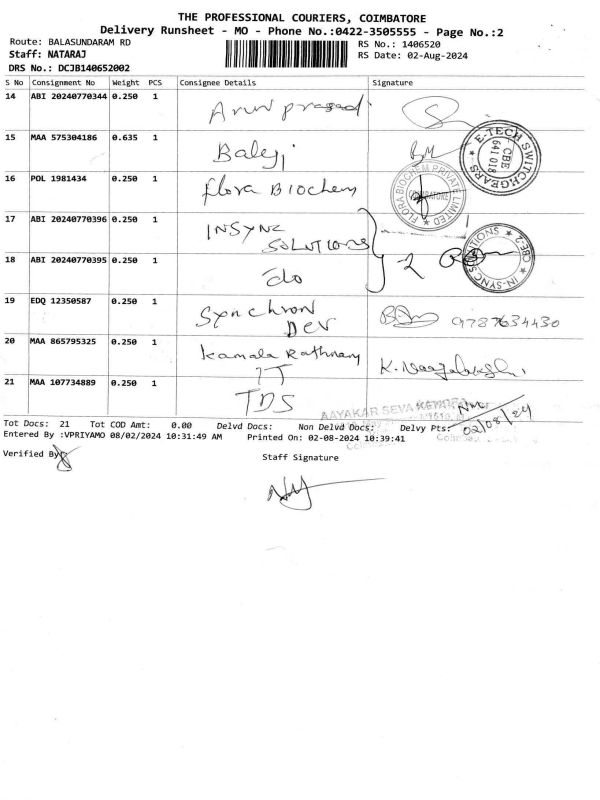 THE PROFESSIONAL COURIERS, COIMBATORE
Delivery Runsheet - MO - Phone No.:0422-3505555 - Page No.:2
Route: BALASUNDARAM RD
RS No.: 1406520
Staff: NATARAJ
RS Date: 02-Aug-2024
DRS No.: DCJB140652002
S No Consignment No Weight PCS Consignee Details Signature
14 ABI 20240770344 0.250 1 Arun prasad
15 MAA 575304186 0.635 1 Balaji
E-TECH SWITCHGEARS
CBE
641 018
16 POL 1981434 0.250 1 flora Biochem
FLORA BIOCHEM PRIVATE LIMITED
COIMBATORE
17 ABI 20240770396 0.250 1 INSYNC
SOLUTIONS
2
IN-SYNC SOLUTIONS CBE-2
18 ABI 20240770395 0.250 1 do
19 EDQ 12350587 0.250 1 Synchron
Dev
9787634430
20 MAA 865795325 0.250 1 Kamala Rathnam
21 MAA 107734889 0.250 1 IT
TDS
AAYAKAR SEVA KENDRA
Tot Docs: 21 Tot COD Amt: 0.00 Delvd Docs: Non Delvd Docs: Delvy Pts:
02/08/24
Entered By :VPRIYAMO 08/02/2024 10:31:49 AM Printed On: 02-08-2024 10:39:41
Verified By
Staff Signature